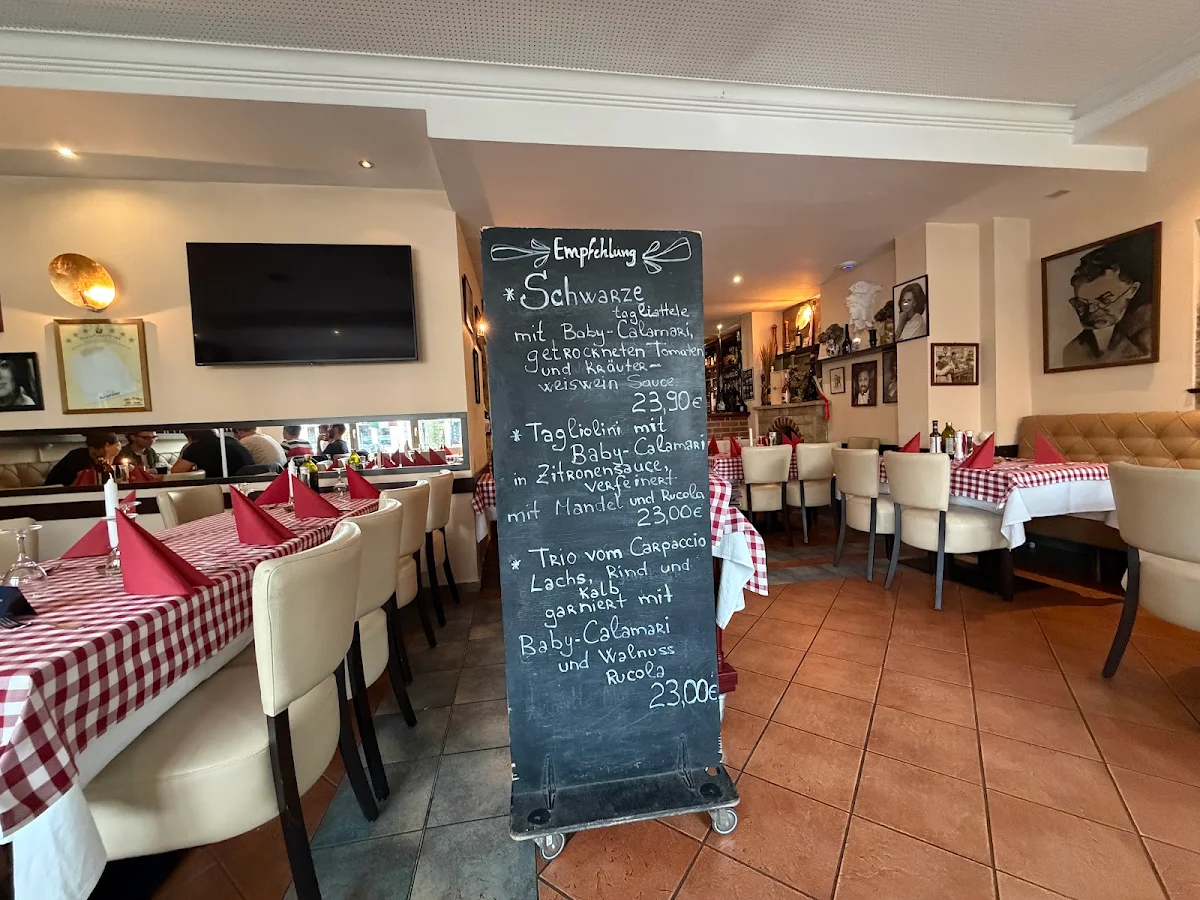 Empfehlung
* Schwarze
tagliattele
mit Baby-Calamari,
getrockneten Tomaten
und Kräuter-
weiswein Sauce
23,90€
* Tagliolini mit
Baby-Calamari
in Zitronensauce,
verfeinert
mit Mandel und Rucola
23,00€
* Trio vom Carpaccio
Lachs, Rind und
Kalb
garniert mit
Baby-Calamari
und Walnuss
Rucola
23,00€